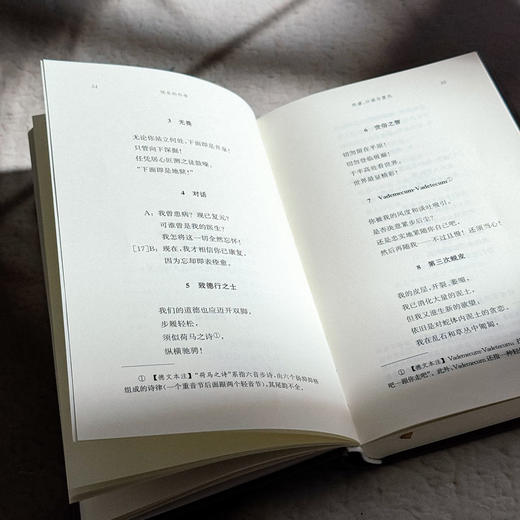 24
快乐的科学
3 无畏
无论你站立何处，下面即是井泉！
只管向下深掘！
任凭居心叵测之徒鼓噪，
“下面即是地狱！”
4 对话
A：我曾患病？现已复元？
可谁曾是我的医生？
我怎将这一切全然忘怀！
[17]B：现在，我才相信你已康复。
因为忘却即表痊愈。
5 致德行之士
我们的道德也应迈开双脚，
步履轻松，
须似荷马之诗①，
纵横驰骋！
① 【德文本注】“荷马之诗”系指六音步诗，由六个扬抑抑格
组成的诗律（一个重音节后面跟两个轻音节），其尾韵不全。
戏谑、诡谲与复仇
6 世俗之智
切勿留在平原！
切勿登临极巅！
于半高处看世界，
世界最显精彩！
7 Vademecum-Vadetecum①
你被我的风度和谈吐吸引，
是否决意紧步后尘？
还是忠实地紧随你自己吧，
然后再随我——不过且慢！还须当心！
8 第三次蜕皮
我的皮层，开裂、萎缩，
我已消化大量的泥土，
但我又滋生新的欲望；
依旧是对蛇体内泥土的贪恋，
我在乱石和草丛中匍匐，
① 【德文本注】Vademecum-Vadetecum：
吧—跟你走吧”。此外，Vademecum还指一种轻